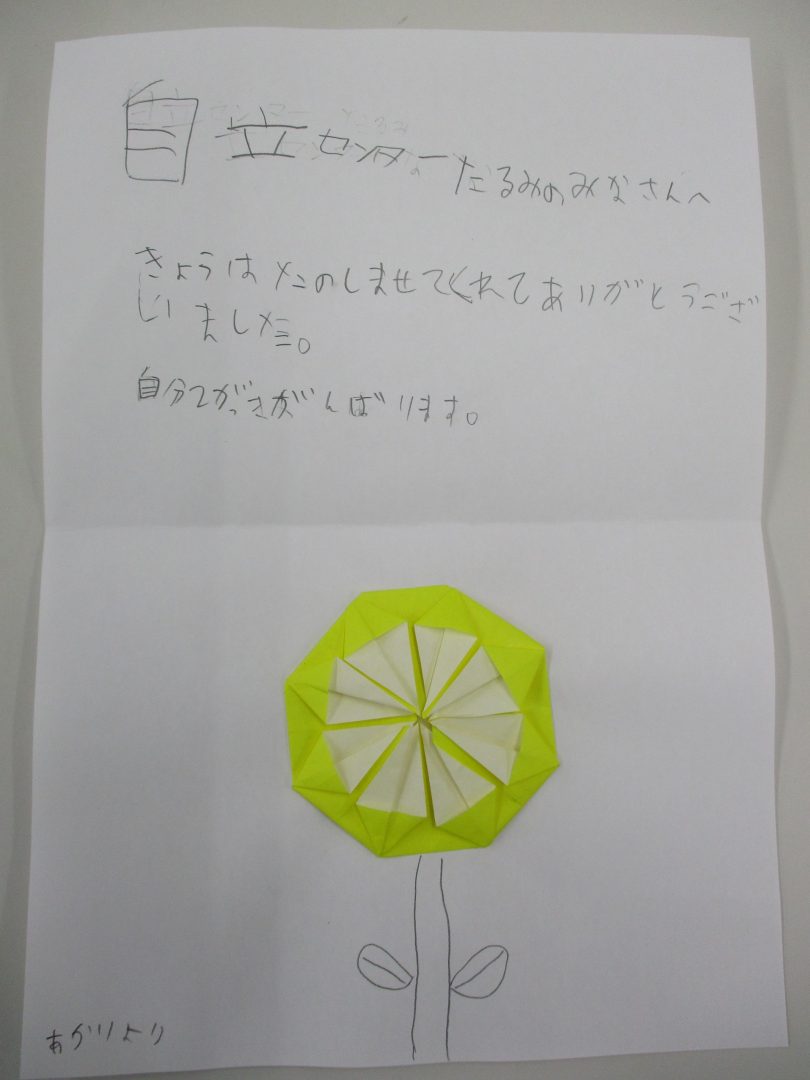 自立センターたるみのみなさんへ
きょうはたのしませてくれてありがとうござ
いました。
自分でがっきがんばります。
あかりより